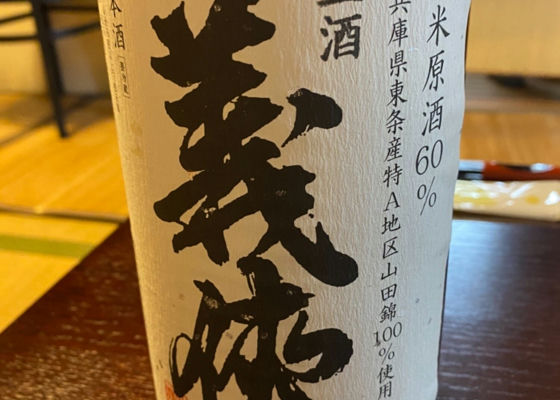 米原酒60%
兵庫県東条産特A地区山田錦100%使用
酒
義侠
本酒